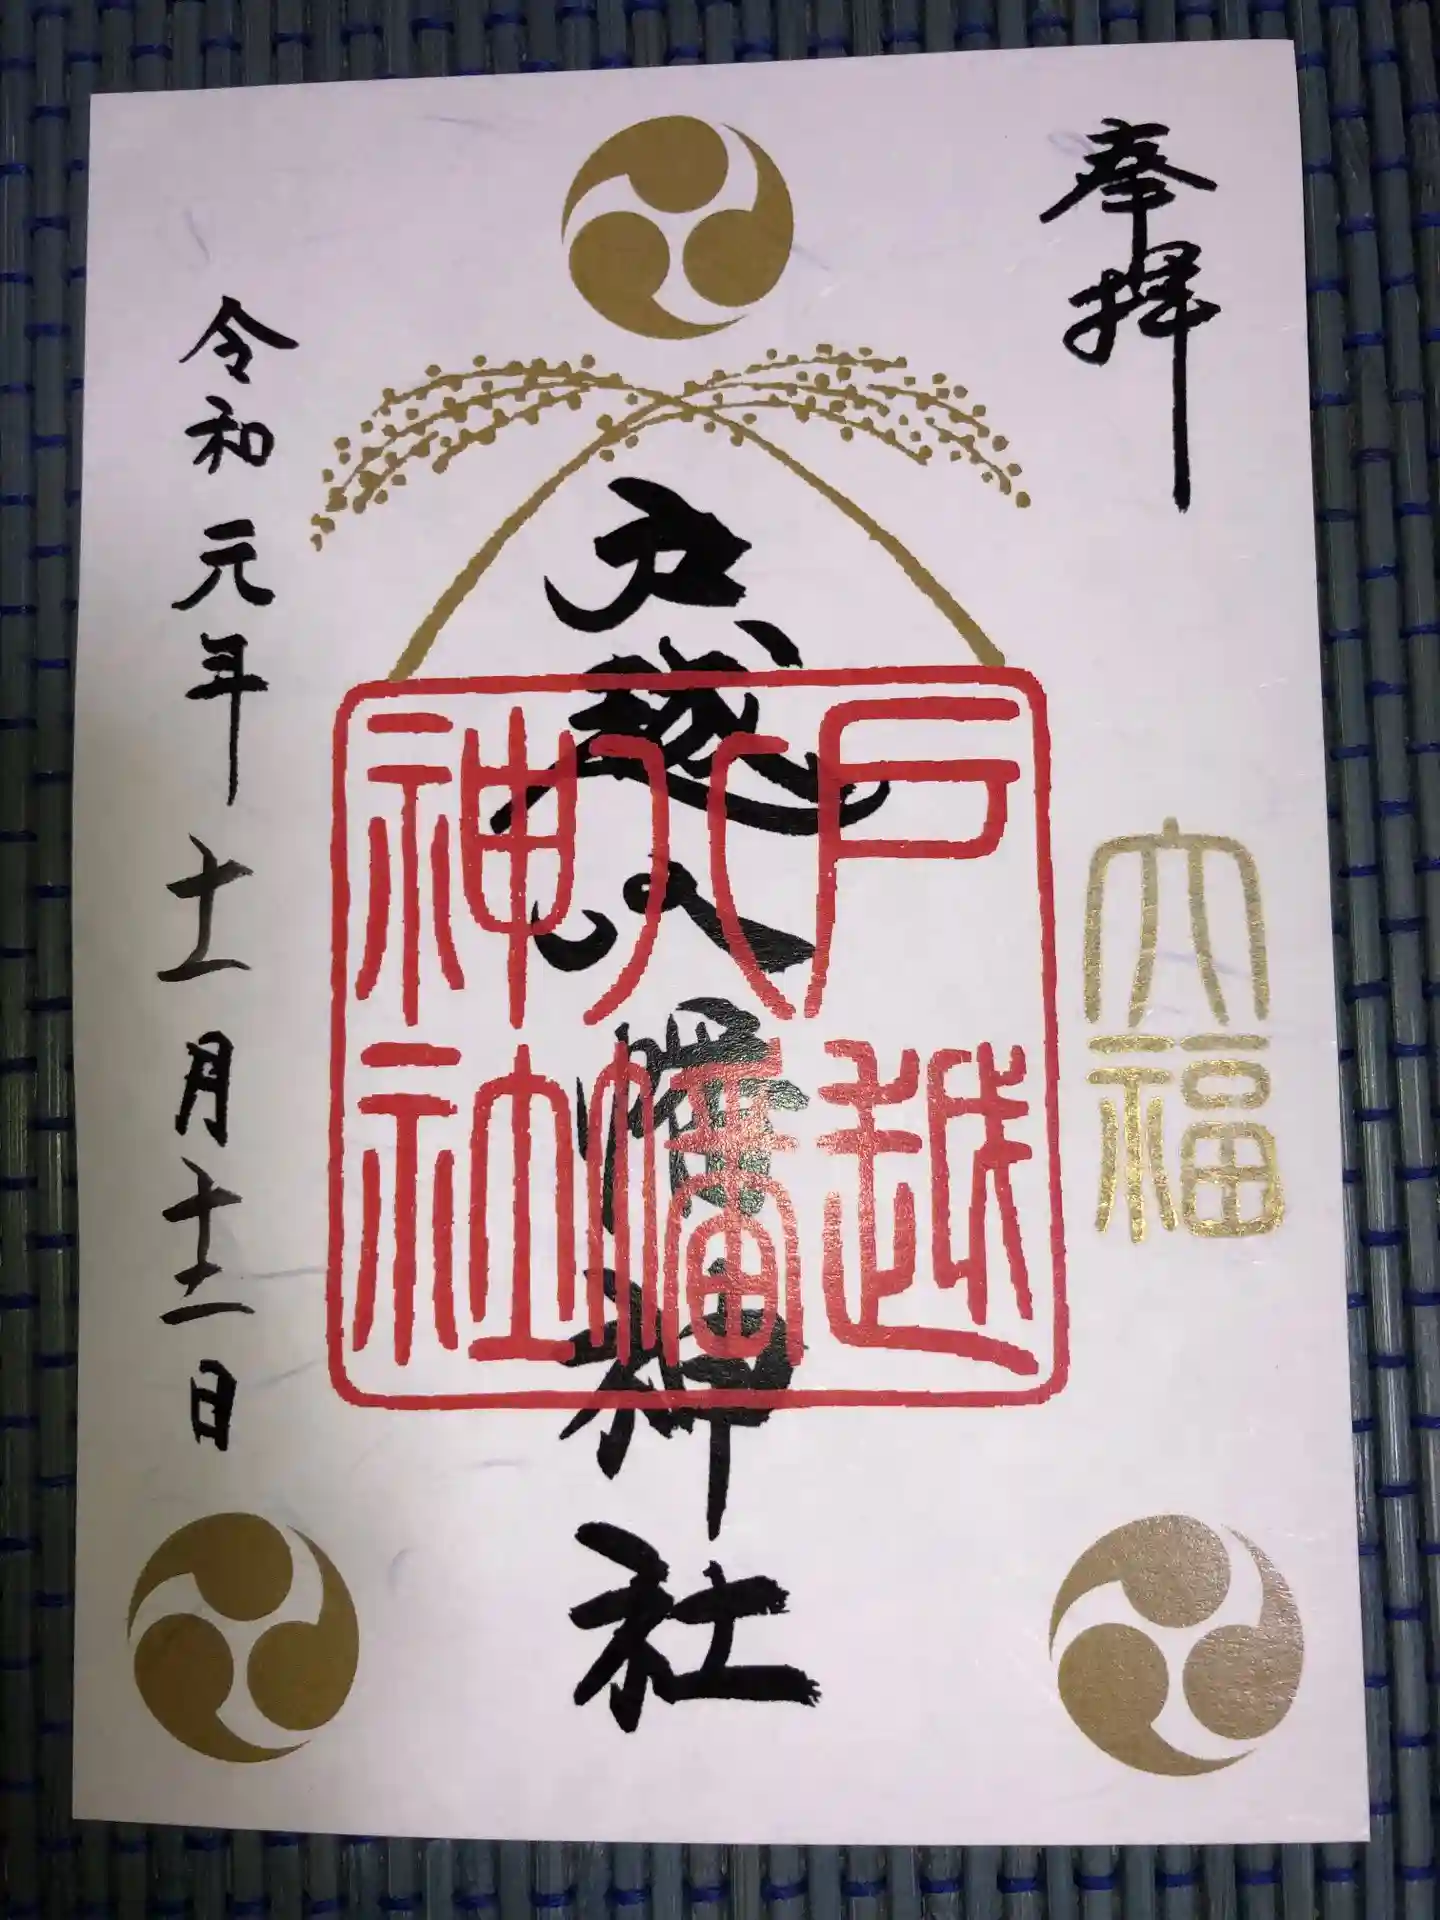 奉拝
大福
戸越八幡神社
戸越
八幡
神社
令和元年十一月十一日